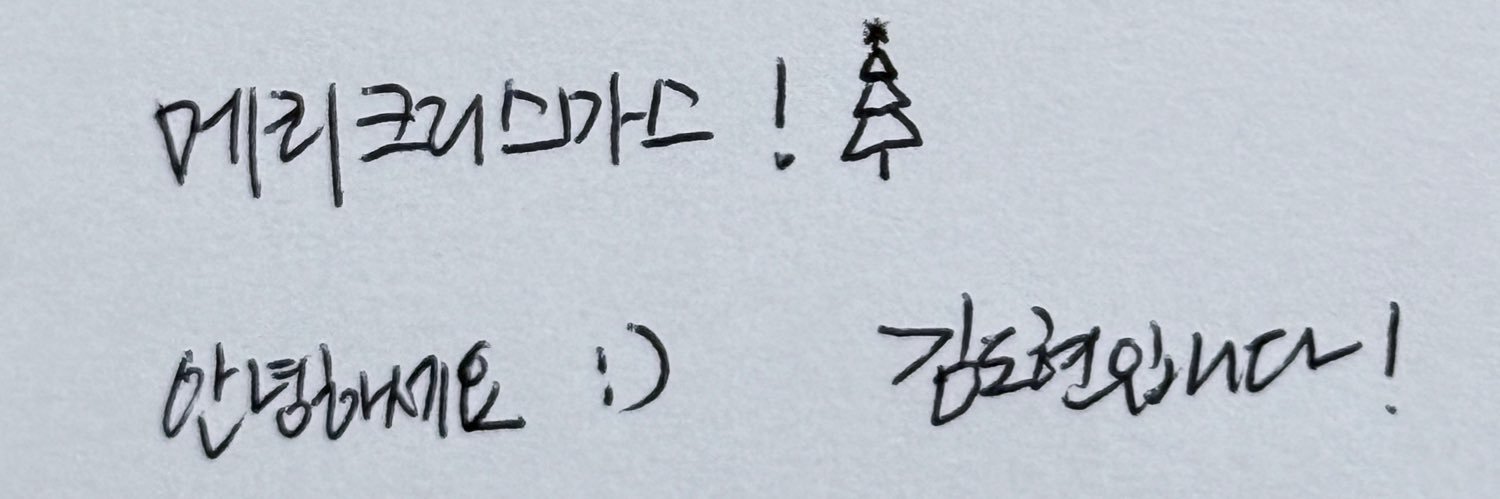 메리크리스마스!
안녕하세요 :) 김도현입니다!